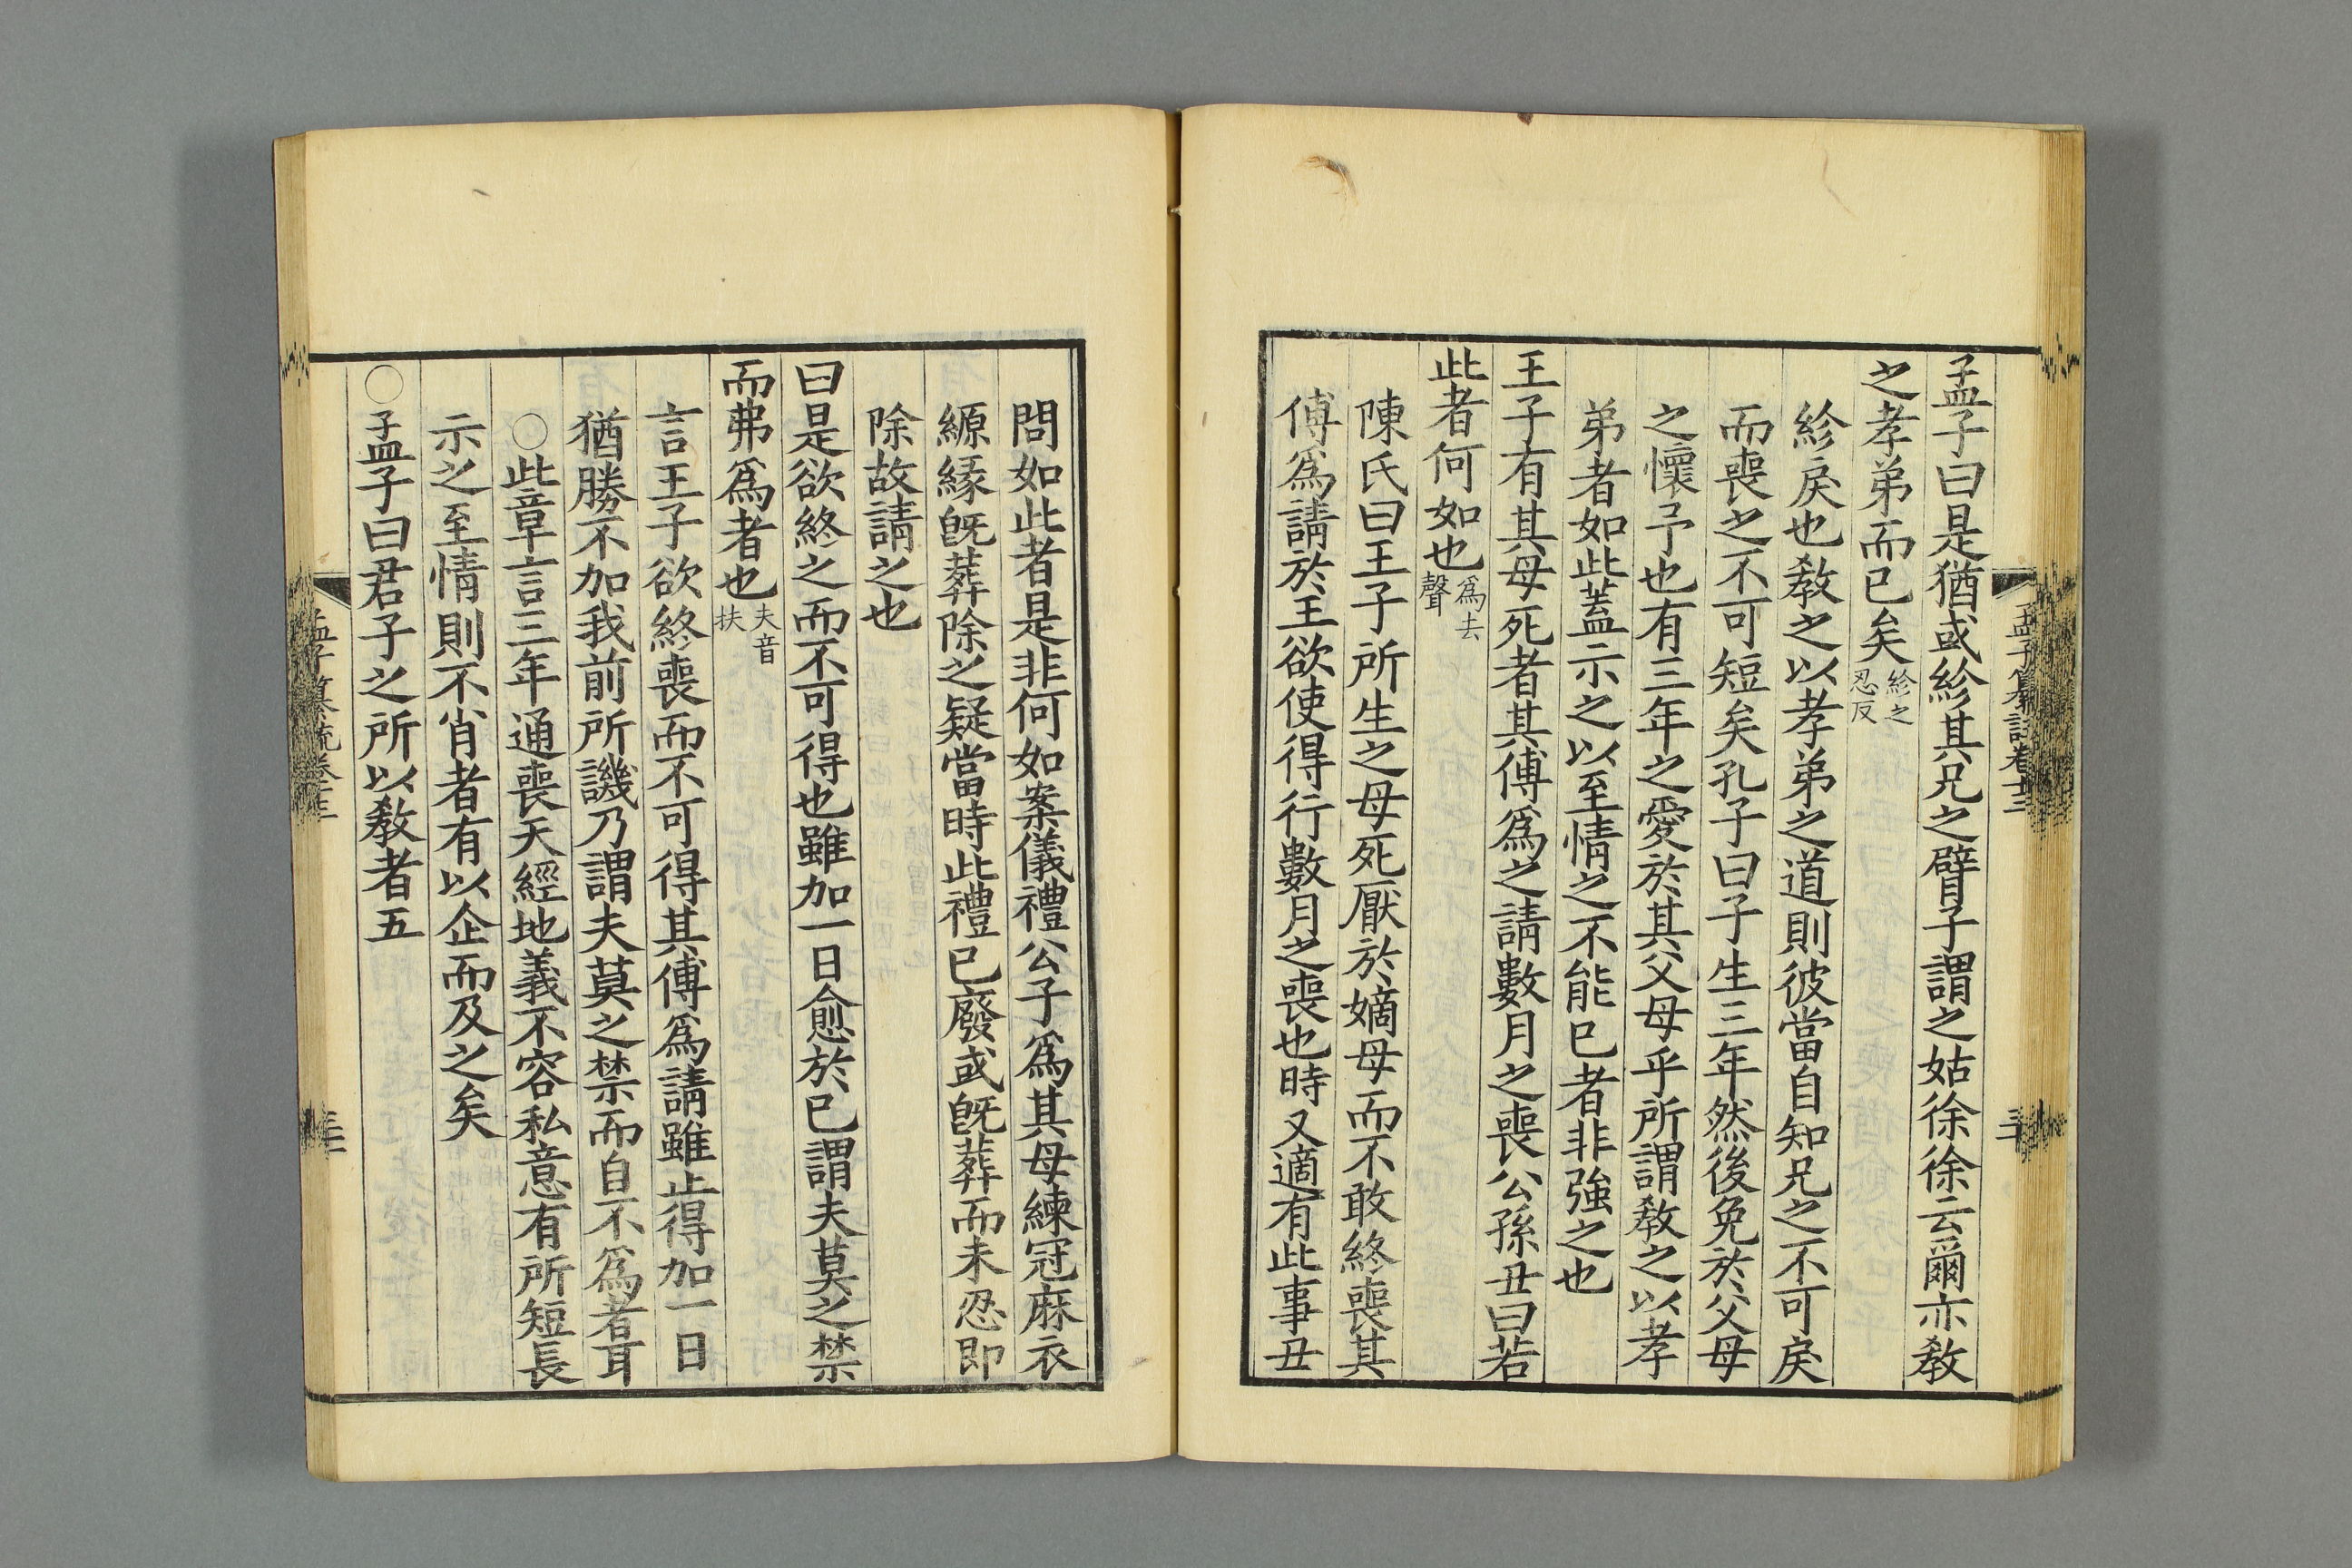 孟子曰是猶或紾其兄之臂子謂之姑徐徐云爾亦敎
之孝弟而已矣紾之忍反
紾戾也敎之以孝弟之道則彼當自知兄之不可戾
而喪之不可短矣孔子曰子生三年然後免於父母
之懷予也有三年之愛於其父母乎所謂敎之以孝
弟者如此蓋示之以至情之不能已者非強之也
王子有其母死者其傅爲之請數月之喪公孫丑曰若
此者何如也爲去聲
陳氏曰王子所生之母死厭於嫡母而不敢終喪其
傅爲請於王欲使得行數月之喪也時又適有此事丑
問如此者是非何如案儀禮公子爲其母練冠麻衣
縓緣旣葬除之疑當時此禮已廢或旣葬而未忍即
除故請之也
曰是欲終之而不可得也雖加一日愈於已謂夫莫之禁
而弗爲者也夫音扶
言王子欲終喪而不可得其傅爲請雖止得加一日
猶勝不加我前所譏乃謂夫莫之禁而自不爲者耳
○此章言三年通喪天經地義不容私意有所短長
示之至情則不肖者有以企而及之矣
○孟子曰君子之所以敎者五